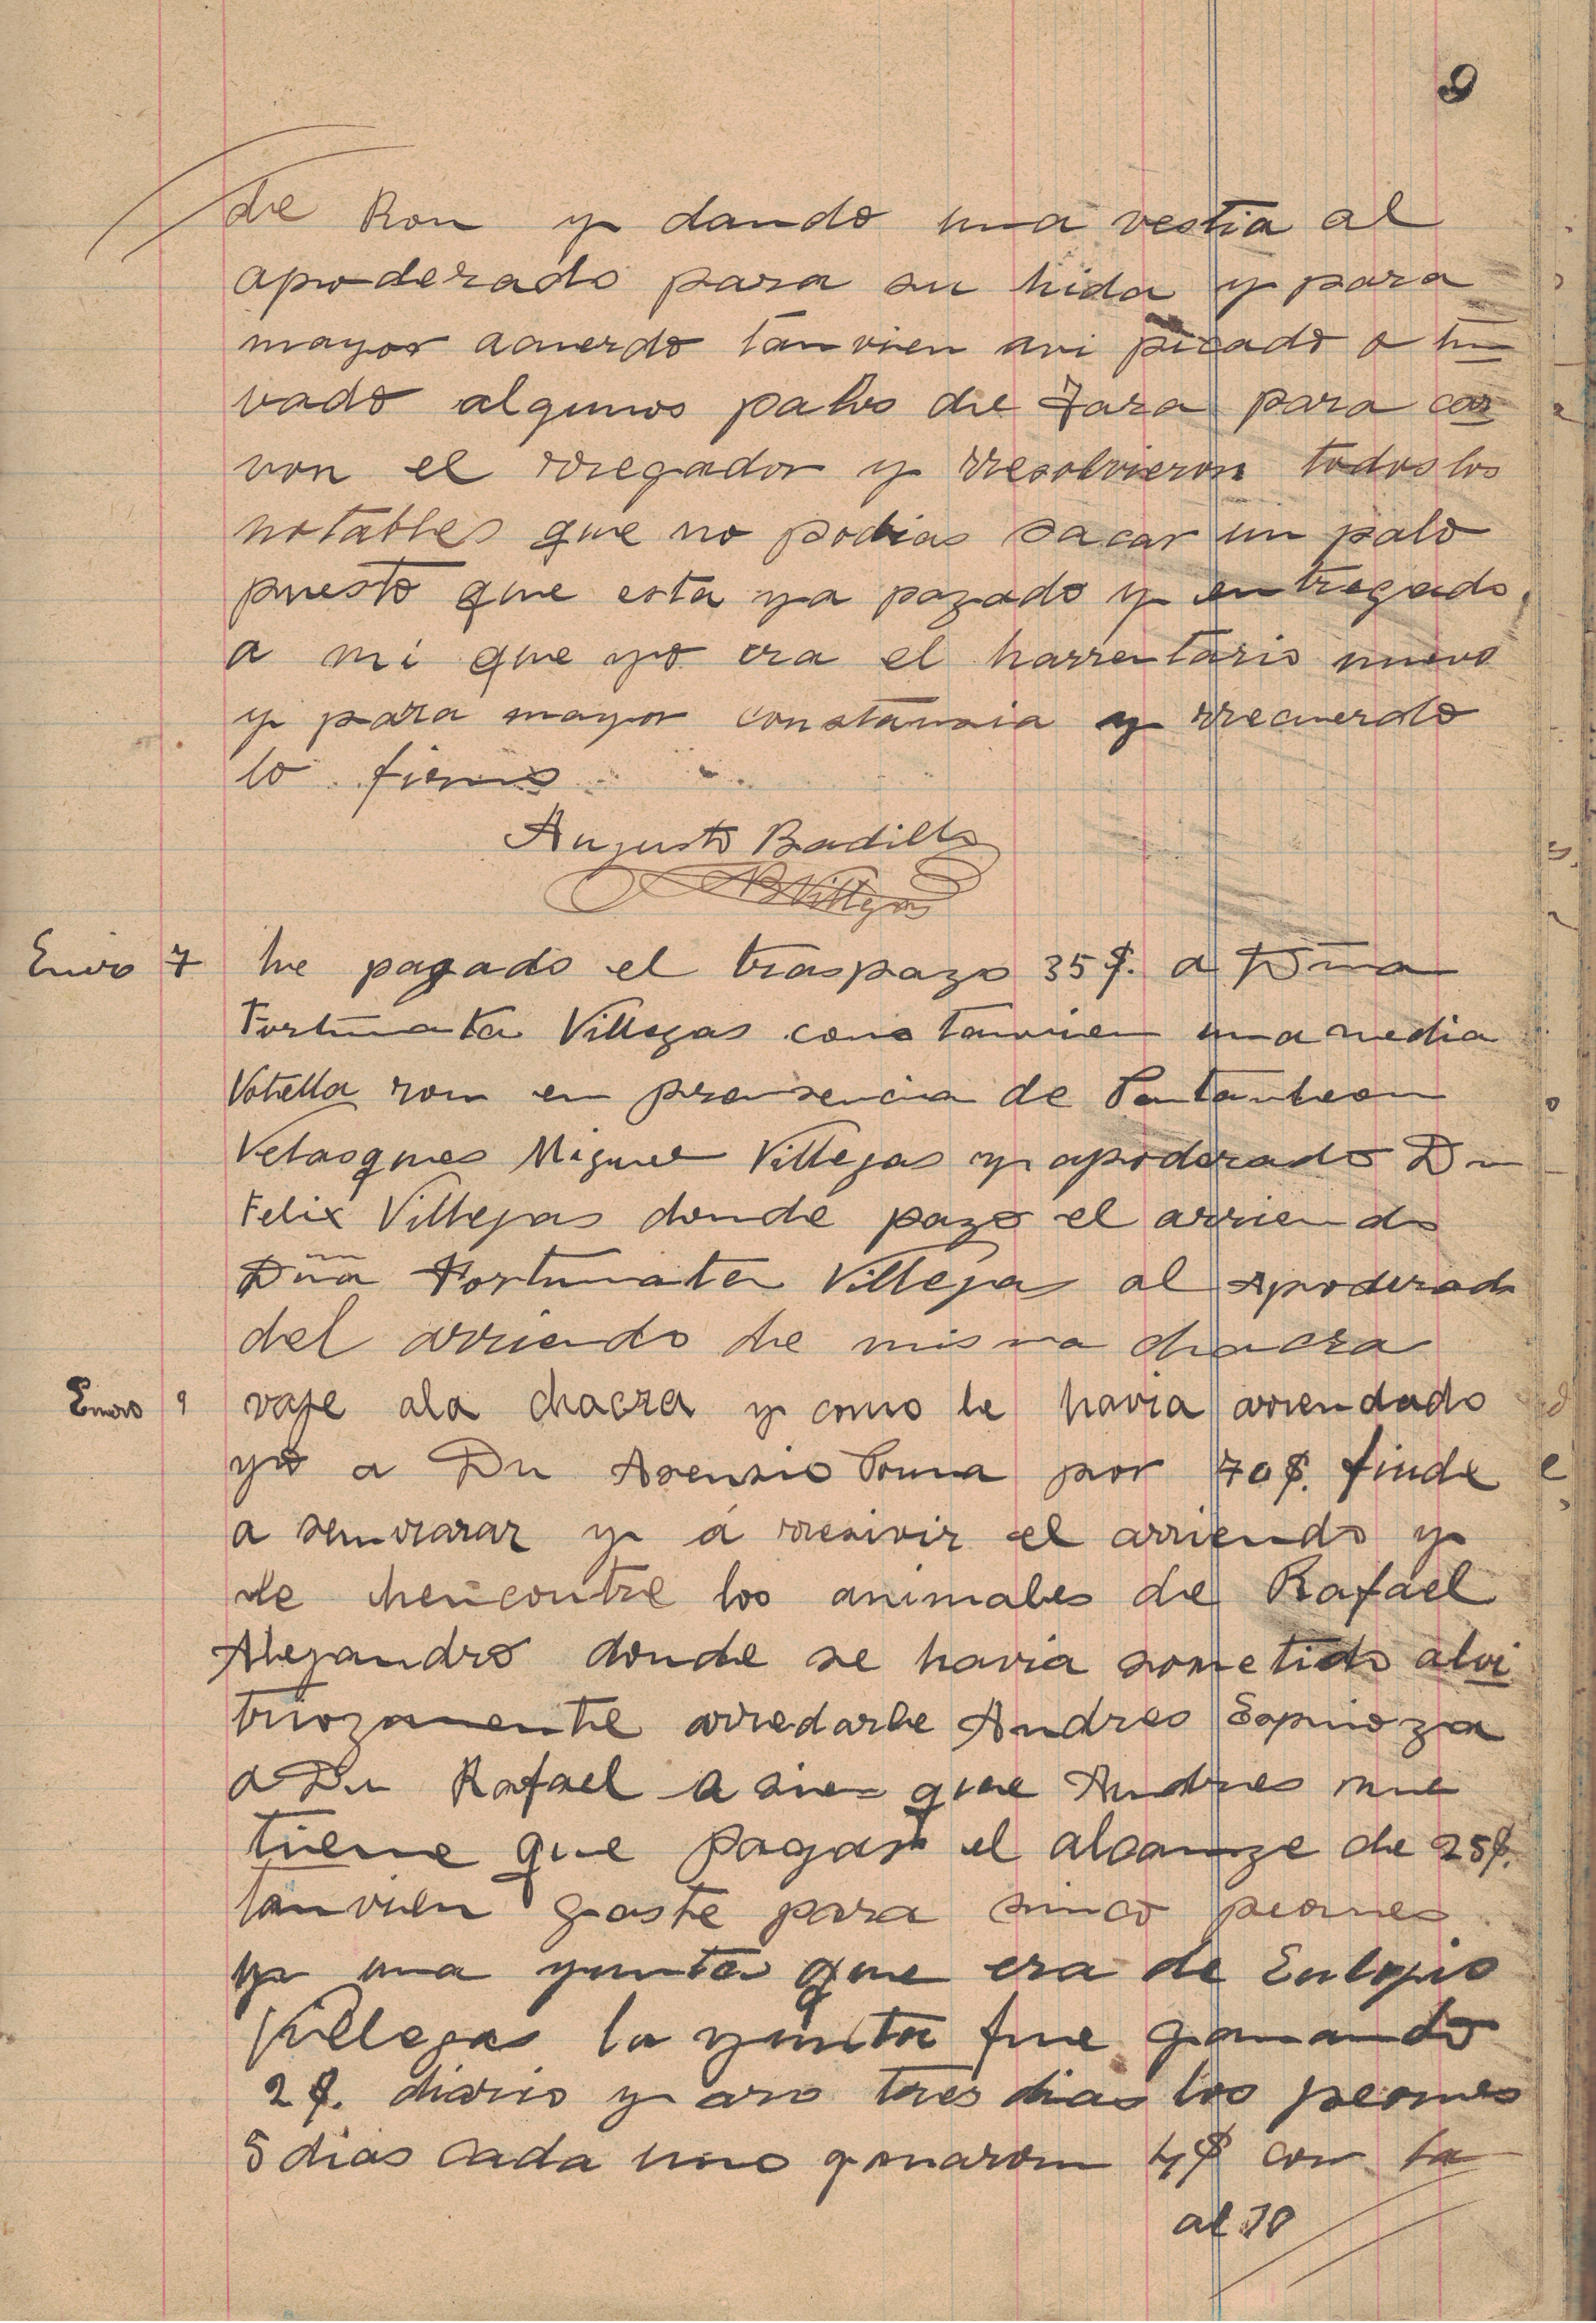 9
de Ron y dando una vestia al
apoderado para su hida y para
mayor acuerdo tanvien avi picado o tun
vado algunos palos de Tara para car
von el rregador y rresolvieron todos los
notables que no podias sacar un palo
puesto que esta ya pagado y entregado
a mi que yo era el harrentario nuevo
y para mayor constansia y rrecuerdo
lo firmo
Augusto Badillo
ABVillegas
Enero 7 he pagado el traspazo 35$. a Dña
Fortunata Villegas como tanvien una media
Votella ron en prensencia de Pantanleon
Velasques Miguel Villegas y apoderado Dn
Felix Villegas donde pago el arriendo
Dña Fortunata Villegas al Apoderado
del arriendo de misma chacra
Enero 9 vaje ala chacra y como le havia arrendado
yo a Dn Asensio Poma por 70$. finde
a semvrarar y á rresivir el arriendo y
le hencontre los animales de Rafael
Alejandro donde se havia sometido alvi
triozamente arredarle Andres Espinoza
a Dn Rafael a sies que Andres me
tiene que pagar el alcanze de 25$.
tanvien gaste para sinco peones
y una yunta que era de Eulojio
Villegas la yunta fue ganando
2$. diario y aro tres dias los peones
5 dias cada uno ganaron 4$ con la
al 10